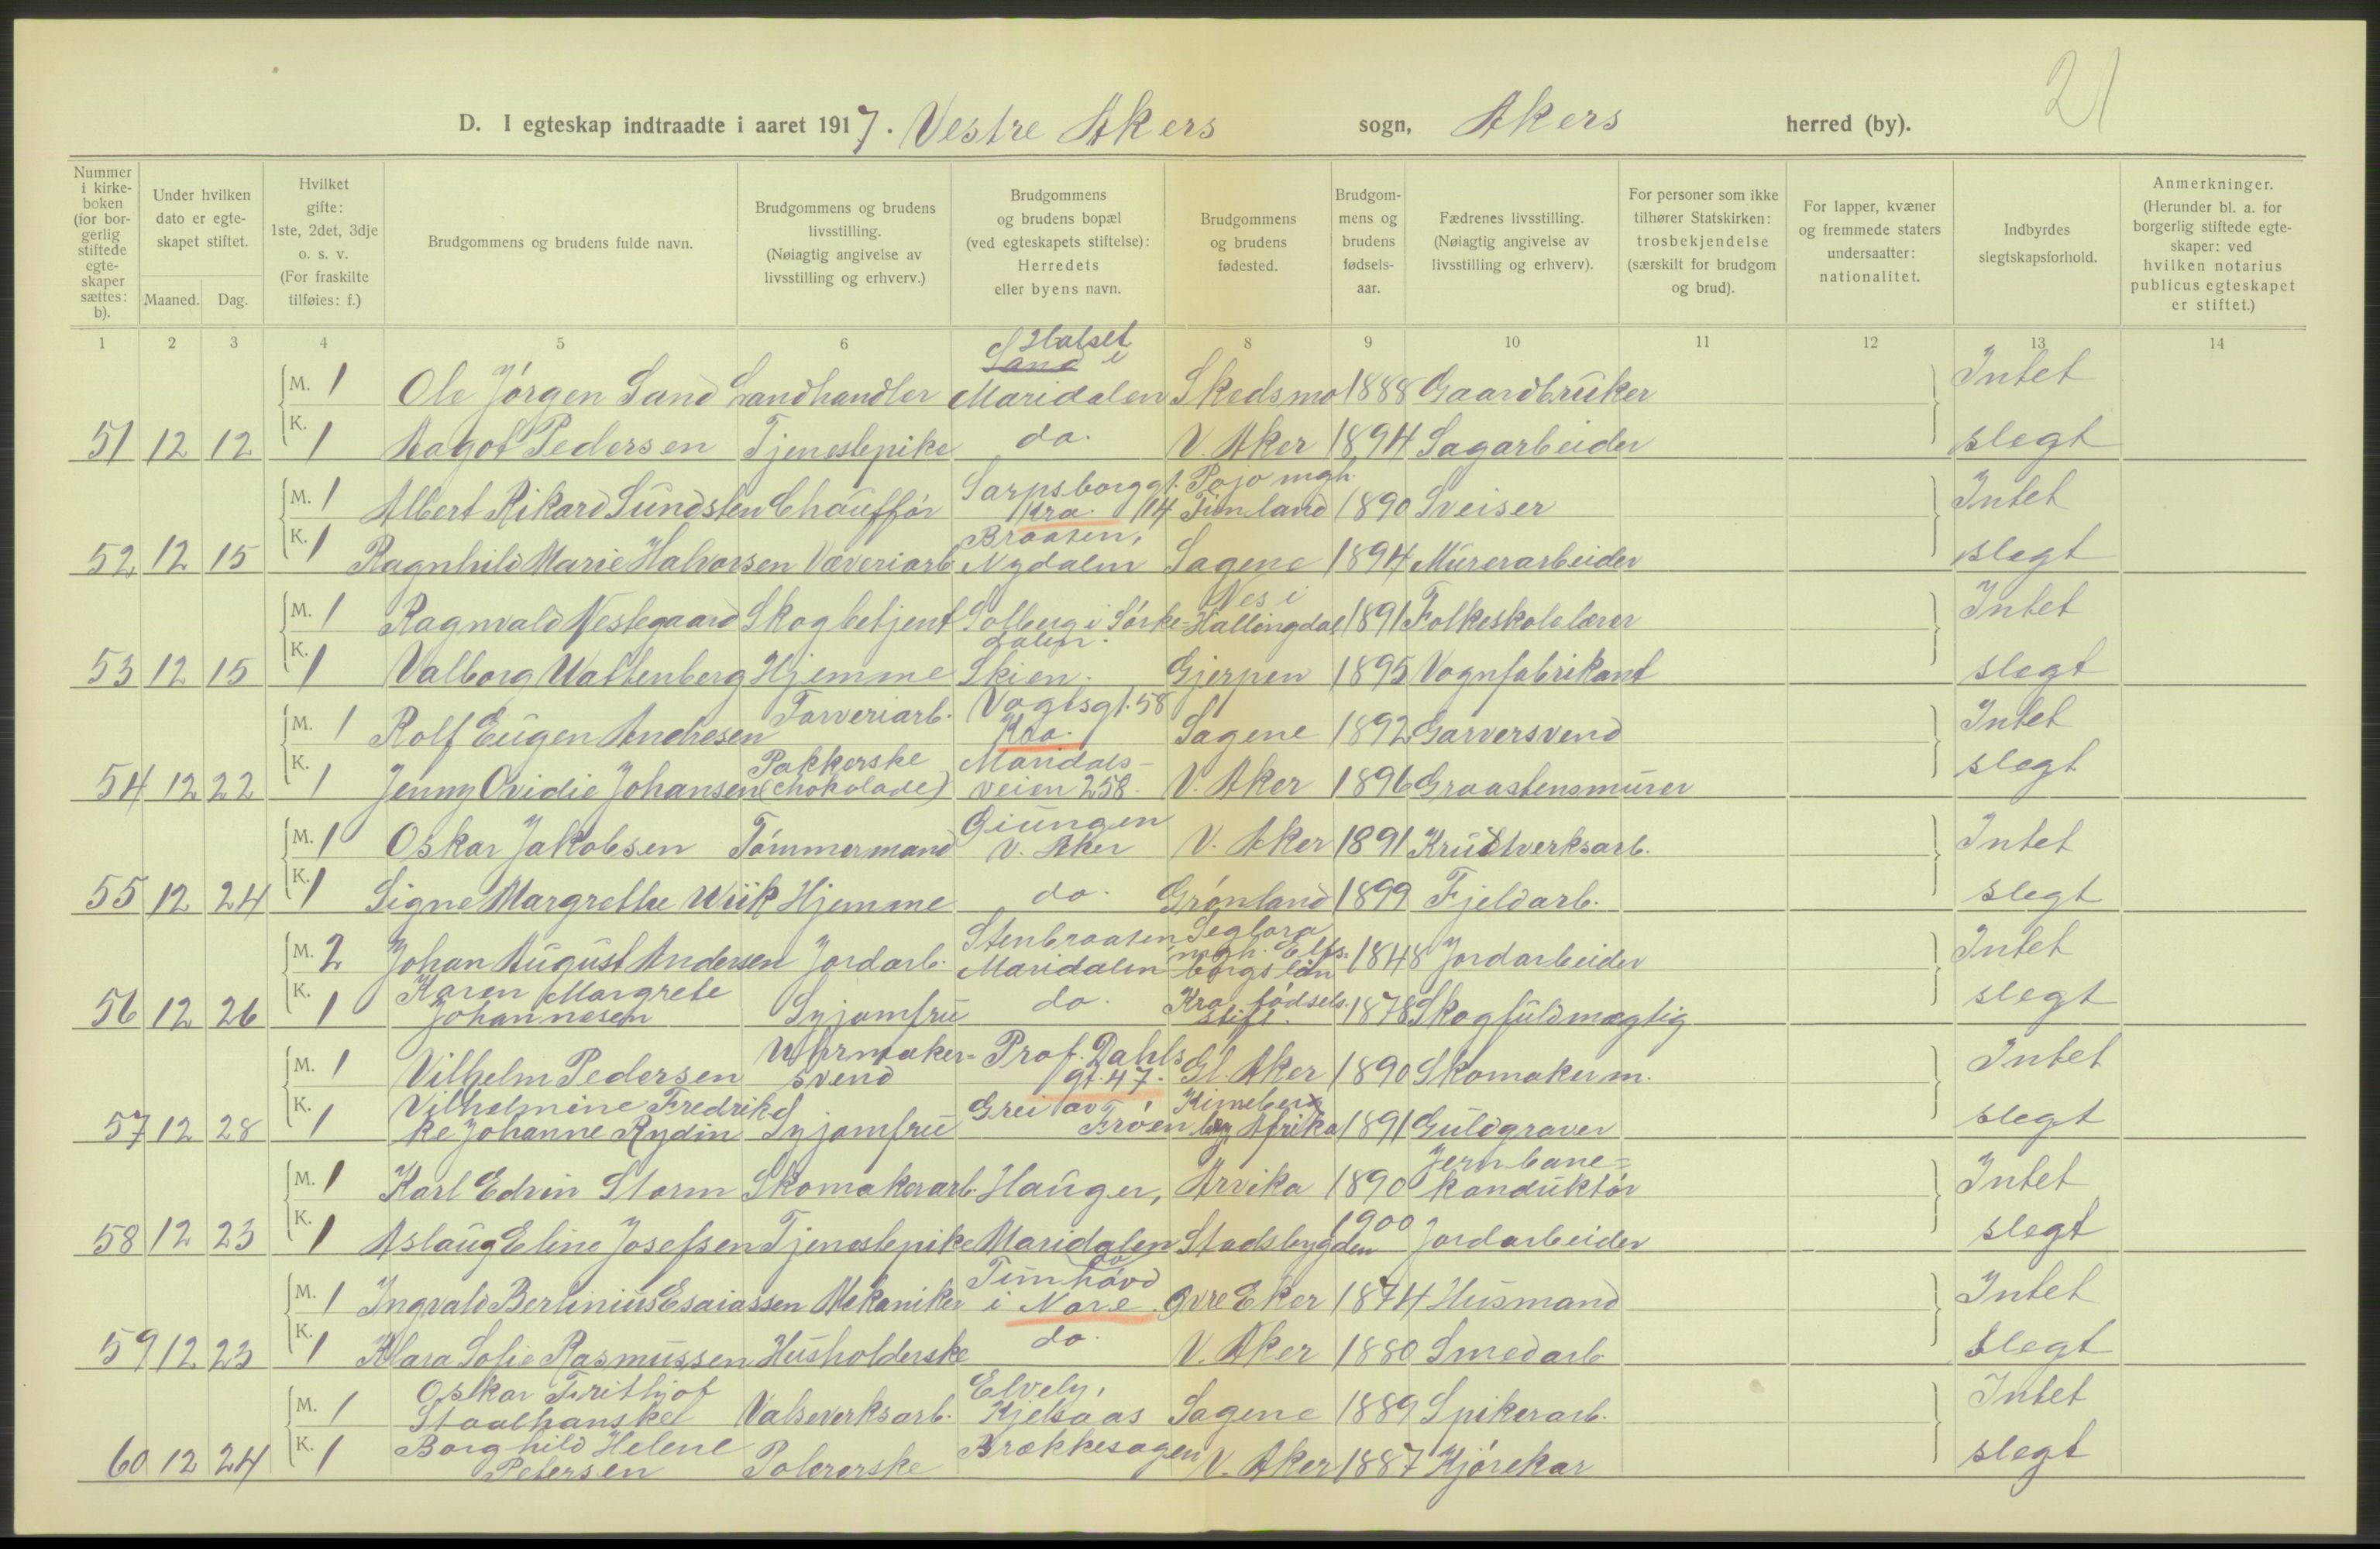 21
D. I egteskap indtraadte i aaret 1917. Vestre Akers sogn, Akers herred (by).
Nummer i kirkeboken (for borgerlig stiftede egteskaper sættes: b).
Under hvilken dato er egteskapet stiftet.
Maaned. Dag.
Hvilket gifte: 1ste, 2det, 3dje o. s. v. (For fraskilte tilføies: f.)
Brudgommens og brudens fulde navn.
Brudgommens og brudens livsstilling. (Nøiagtig angivelse av livsstilling og erhverv.)
Brudgommens og brudens bopæl (ved egteskapets stiftelse): Herredets eller byens navn.
Brudgommens og brudens fødested.
Brudgommens og brudens fødselsaar.
Fædrenes livsstilling. (Nøiagtig angivelse av livsstilling og erhverv).
For personer som ikke tilhører Statskirken: trosbekjendelse (særskilt for brudgom og brud).
For lapper, kvæner og fremmede staters undersaatter: nationalitet.
Indbyrdes slegtskapsforhold.
Anmerkninger. (Herunder bl. a. for borgerlig stiftede egteskaper: ved hvilken notarius publicus egteskapet er stiftet.)
1 2 3 4 5 6 7 8 9 10 11 12 13 14
M. 1 Ole Jörgen Sand Landhandler Sand i Maridalen Skedsmo 1888 Gaardbruker Intet
51 12 12 K. 1 Aagot Pedersen Tjenestepike do. V. Aker 1894 Sagarbeider slegt
M. 1 Albert Rikard Sundsten Chaufför Sarpsborggt. 14 Kra. Pojo mgh. Finland 1890 Sveiser Intet
52 12 15 K. 1 Ragnhild Marie Halvorsen Væveriarb. Braaten, Nydalen Sagene 1894 Murerarbeider slegt
M. 1 Ragnvald Nestegaard Skogbetjent Solberg i Sörkedalen. Nes i Hallingdal 1891 Folkeskolelærer Intet
53 12 15 K. 1 Valborg Wattenberg Hjemme Skien. Gjerpen 1895 Vognfabrikant slegt
M. 1 Rolf Eugen Andresen Farveriarb. Vogtsgt. 58 Kra. Sagene 1892 Garversvend Intet
54 12 22 K. 1 Jenny Ovidie Johansen Pakkerske (chokolade) Maridalsveien 258. V. Aker 1896 Graastensmurer slegt
M. 1 Oskar Jakobsen Tömmermand Giungen V. Aker V. Aker 1891 Krudtverksarb. Intet
55 12 24 K. 1 Signe Margrethe Wiik Hjemme do. Grönland 1899 Fjeldarb. slegt
M. 2 Johan August Andersen Jordarb. Stenbraaten Maridalen Seglora mgh. Elfsborgs län 1848 Jordarbeider Intet
56 12 26 K. 1 Karen Margrete Johannesen Syjomfru do. Kra födsels. stift. 1878 Skogfuldmægtig slegt
M. 1 Vilhelm Pedersen Uhrmakersvend Prof. Dahls gt. 47. Gl. Aker 1890 Skomakerm. Intet
57 12 28 K. 1 Vilhelmine Fredrikke Johanne Rydin Syjomfru Grei av Fröen Afrika 1891 Guldgraver slegt
M. 1 Karl Edvin Storm Skomakerarb. Hauger, Arvika 1890 Jernbanekonduktör Intet
58 12 23 K. 1 Aslaug Eline Josefsen Tjenestepike Maridalen Stadsbygden 1900 Jordarbeider slegt
M. 1 Ingvald Berlinius Esaiassen Mekaniker i Nore. Övre Eker 1874 Husmand Intet
59 12 23 K. 1 Klara Sofie Rasmussen Husholderske do. V. Aker 1880 Smedarb. slegt
M. 1 Oskar Frithjof Staalhanske Valseverksarb. Elvely, Kjelsaas Sagene 1889 Spikerarb. Intet
60 12 24 K. 1 Borghild Helene Petersen Polererske Brækkesagen V. Aker 1887 Kjörekar slegt